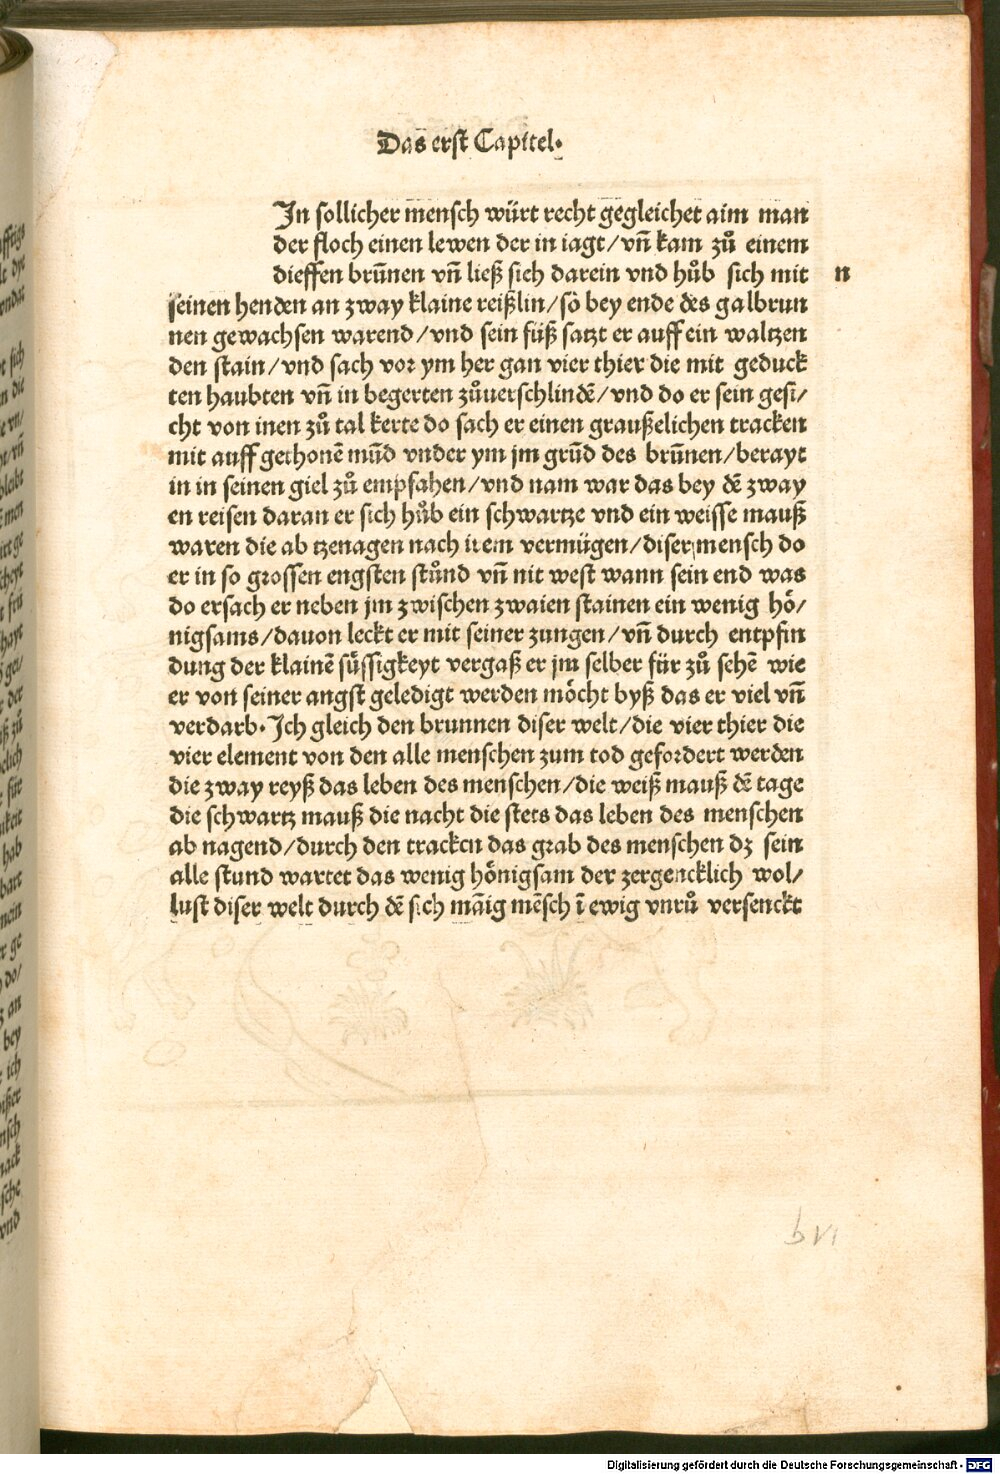 Das erst Capitel.
In sollicher mensch würt recht gegleichet aim man
der floch einen lewen der in iagt/vn̄ kam zů einem
dieffen brūnen vn̄ ließ sich darein vnd hůb sich mit n
seinen henden an zway klaine reißlin/so bey ende des galbrun
nen gewachsen warend/vnd sein füß satzt er auff ein waltzen
den stain/vnd sach vor ym her gan vier thier die mit geduck
ten haubten vn̄ in begerten zůuerschlindē/vnd do er sein gesi/
cht von inen zů tal kerte do sach er einen graußelichen tracken
mit auff gethonē mūd vnder ym jm grūd des brūnen/berayt
in in seinen giel zů empfahen/vnd nam war das bey dē zway
en reisen daran er sich hůb ein schwartze vnd ein weisse mauß
waren die ab tzenagen nach irem vermügen/diser mensch do
er in so grossen engsten stůnd vn̄ nit west wann sein end was
do ersach er neben jm zwischen zwaien stainen ein wenig hö/
nigsams/dauon leckt er mit seiner zungen/vn̄ durch entpfin
dung der klainē süssigkeyt vergaß er jm selber für zů sehē wie
er von seiner angst geledigt werden möcht byß das er viel vn̄
verdarb. Ich gleich den brunnen diser welt/die vier thier die
vier element von den alle menschen zum tod gefordert werden
die zway reyß das leben des menschen/die weiß mauß dē tage
die schwartz mauß die nacht die stets das leben des menschen
ab nagend/durch den tracken das grab des menschen dz sein
alle stund wartet das wenig hönigsam der zergencklich wol/
lust diser welt durch dē sich māig mēsch ī ewig vnrů versenckt
b vi
Digitalisierung gefördert durch die Deutsche Forschungsgemeinschaft - DFG